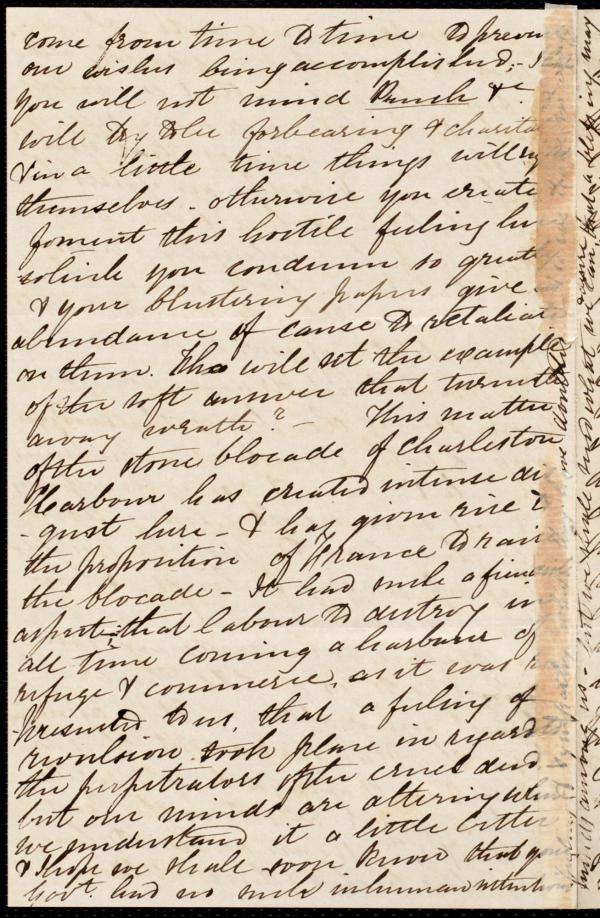 come from time to time to preven
our wishes being accomplished; I
you will not mind Punch &c
will try to be forbearing & charita
& in a little time things will
themselves - otherwise you create
foment this hostile feeling
which you condemn so great
& your blustering papers give
abundance of cause to retaliat
on them. Who will set the example
of the soft answer that turneth
away wrath? - This matter
of the stone blocade of Charleston
Harbour has created intense dis
-gust here - & has given rise to
the proposition of France to rais
the blocade - It had such a fien
aspect; that labour to destroy
all time coming a harbour of
refuge & commerce, as it was
presented to us, that a feeling of
revulsion took place in regard
the perpetrators of the cruel deed
but our minds are altering when
we understand it a little better
& I hope we shall soon know that you
Govt. had no such inhuman intent